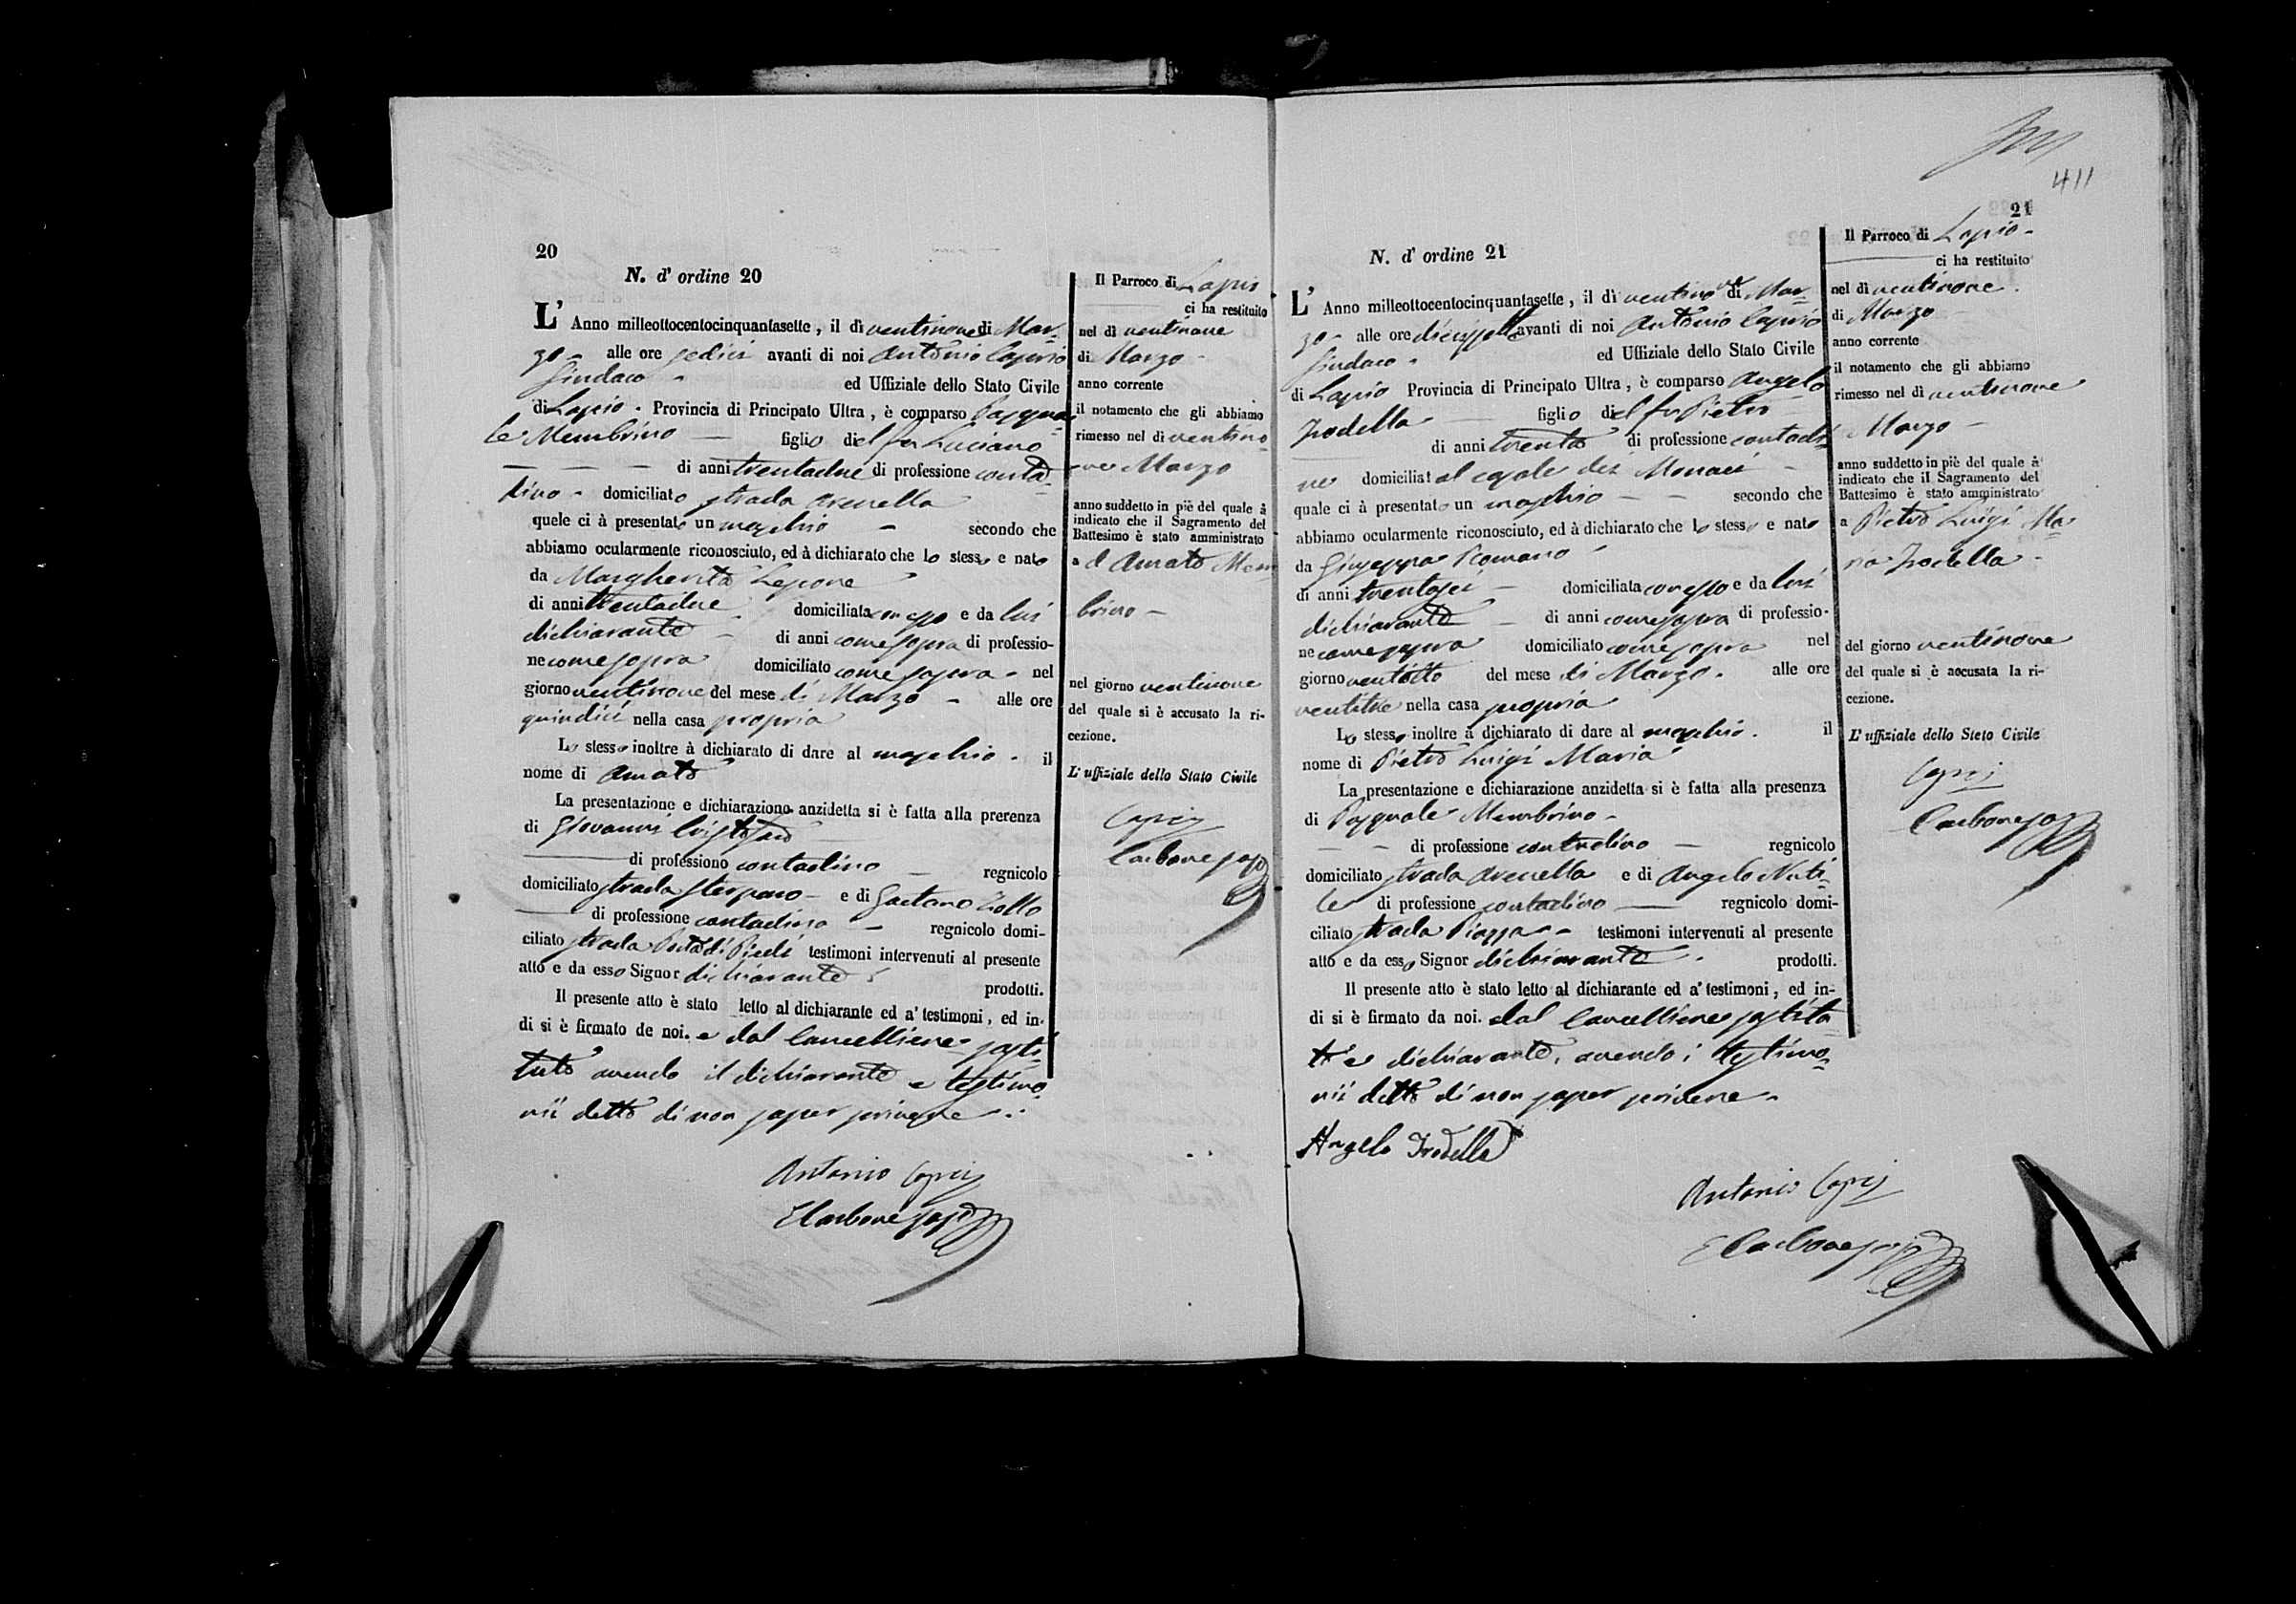 20
N. d' ordine 20
L' Anno milleottocentocinquantasette, il dì ventinove di Mar-
zo - alle ore sedici avanti di noi Antonio Caprio
Sindaco - ed Uffiziale dello Stato Civile
di Lapio. Provincia di Principato Ultra, è comparso Pasqua-
le Membrino — figlio del fu Luciano
— — — di anni trentadue di professione conta-
dino - domiciliato strada Arenella
quele ci à presentato un maschio - secondo che
abbiamo ocularmente riconosciuto, ed à dichiarato che lo stesso e nato
da Margherita Lepore
di anni trentadue domiciliata con esso e da lui
dichiarante - di anni come sopra di professio-
ne come sopra domiciliato come sopra - nel
giorno ventinove del mese di Marzo - alle ore
quindici nella casa propria
Lo stesso inoltre à dichiarato di dare al maschio - il
nome di Amato
La presentazione e dichiarazione anzidetta si è fatta alla prerenza
di Giovanni Cristofaro
— di professiono contadino - regnicolo
domiciliato strada - e di Gaetano
— di professione contadino - regnicolo domi-
ciliato strada testimoni intervenuti al presente
atto e da esso Signor dichiarante prodotti.
Il presente atto è stato letto al dichiarante ed a' testimoni, ed in-
di si è firmato de noi. e dal Cancelliere sosti-
tuto avendo il dichiarante e testimo-
nii detto di non saper scrivere -.
Antonio Caprio
E Carbone
Il Parroco di Lapio
ci ha restituito
nel dì ventinove
di Marzo -
anno corrente
il notamento che gli abbiamo
rimesso nel dì ventino-
ve Marzo
anno suddetto in piè del quale à
indicato che il Sagramento del
Battesimo è stato amministrato
a d Amato Mem-
brino -
nel giorno ventinove
del quale si è accusato la ri-
cezione.
L' uffiziale dello Stato Civile
Caprio
Carbone
411
21
N. d' ordine 21
L' Anno milleottocentocinquantasette, il dì ventinove di Mar-
zo - alle ore diciassette avanti di noi Antonio Caprio
Sindaco - ed Uffiziale dello Stato Civile
di Lapio Provincia di Principato Ultra, è comparso Angelo
Trodella — figlio del fu Pietro
di anni trenta di professione contadi-
ne domiciliat al casale dei Monaci -
quale ci à presentato un maschio — - secondo che
abbiamo ocularmente riconosciuto, ed à dichiarato che lo stesso e nato
da Giuseppa Romano
di anni trentasei - domiciliata con esso e da lui
dichiarante - di anni come sopra di professio-
ne come sopra domiciliato come sopra nel
giorno ventotto del mese di Marzo. alle ore
ventitre nella casa propria
Lo stesso inoltre à dichiarato di dare al maschio. il
nome di Pietro Luigi Maria
La presentazione e dichiarazione anzidetta si è fatta alla presenza
di Pasquale Membrino -
— - di professione contadino — regnicolo
domiciliato strada Arenella e di Angelo Nati-
le di professione contadino — regnicolo domi-
ciliato strada Piazza - - testimoni intervenuti al presente
atto e da esso Signor dichiarante. prodotti.
Il presente atto è stato letto al dichiarante ed a' testimoni, ed in-
di si è firmato da noi. dal Cancelliere sostitu-
to e dichiarante, avendo i testimo-
nii detto di non saper scrivere -
Angelo Trodella
Antonio Caprio
E Carbone
Il Parroco di Lapio -
ci ha restituito
nel dì ventinove.
di Marzo
anno corrente
il notamento che gli abbiamo
rimesso nel dì ventinove
Marzo -
anno suddetto in piè del quale à
indicato che il Sagramento del
Battesimo è stato amministrato
a Pietro Luigi Ma-
ria Trodella -
del giorno ventinove
del quale si è accusata la ri-
cezione.
L' uffiziale dello Steto Civile
Caprio
Carbone